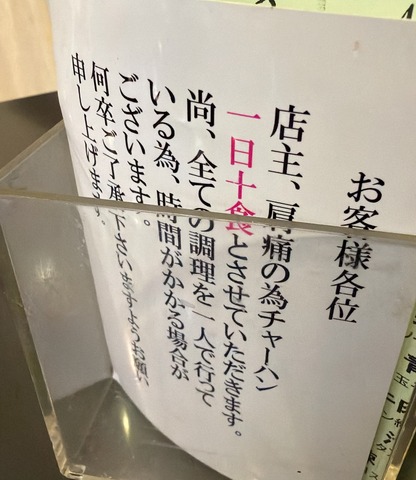 お客様各位
店主、肩痛の為チャーハン
一日十食とさせていただきます。
尚、全ての調理を一人で行って
いる為、時間がかかる場合が
ございます。
何卒ご了承下さいますようお願い
申し上げます。